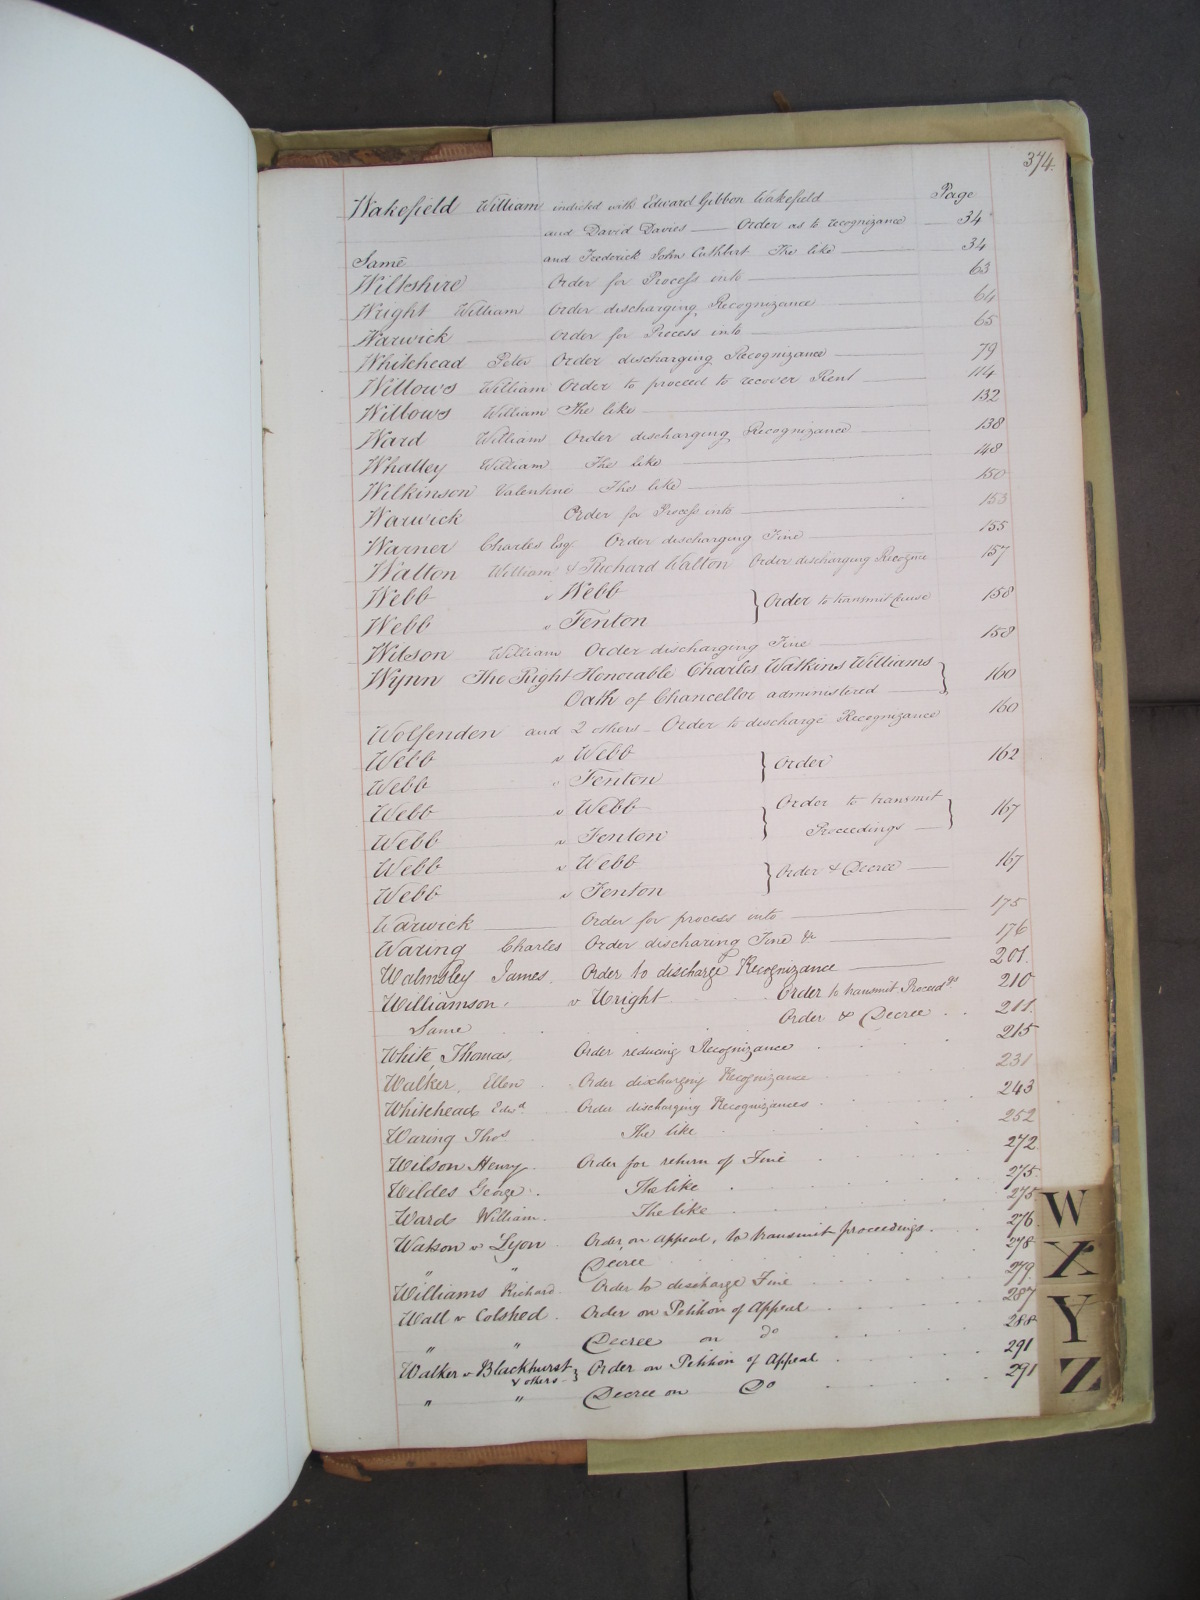 374.
Page
Wakefield William indicted with Edward Gibbon Wakefield
and David Davies — Order as to recognizance — 34
Same and Frederick John Cuthbert The like — 34
Wiltshire Order for Process into — 63
Wright William Order discharging Recognizance — 64
Warwick Order for Process into — 65
Whitehead Peter Order discharging Recognizance — 79
Willows William Order to proceed to recover Rent — 114
Willows William The like — 132
Ward William Order discharging Recognizance — 138
Whalley William The like — 148
Wilkinson Valentine The like — 150
Warwick Order for Process into — 153
Warner Charles Esq. Order discharging Fine — 155
Walton William & Richard Walton Order discharging Recogni 157
Webb v Webb } Order to transmit Cause 158
Webb v Fenton
Wilson William Order discharging Fine — 158
Wynn The Right Honorable Charles Watkins Williams
Oath of Chancellor administered — } 160
Wolfenden and 2 others – Order to discharge Recognizance 160
Webb v Webb } Order 162
Webb v Fenton
Webb v Webb } Order to transmit
Webb v Fenton Proceedings — } 167
Webb v Webb } Order & Decree — 167
Webb v Fenton
Warwick — Order for process into — 175
Waring Charles Order discharing Fine &c — 176
Walmsley James. Order to discharge Recognizance — 201.
Williamson. v Wright Order to transmit Proceedgs 210
Same Order & Decree . . 211.
White, Thomas, Order reducing Recognizance 215
Walker, Ellen . Order discharging Recognizance 231
Whitehead Edwd. Order discharging Recognizances . 243
Waring Thos The like 252
Wilson Henry . Order for return of Fine 272.
Wildes George . The like 275.
Ward William. The like 275
Watson v Lyon . Order on appeal, to transmit proceedings . 276
" " Decree 278
Williams Richard. Order to discharge Fine 279.
Wall v Colshed . Order on Petition of Appeal 287
" " Decree on Do 288
Walker v Blackhurst & others } Order on Petition of Appeal 291
" " Decree on Do 291
W
X
Y
Z